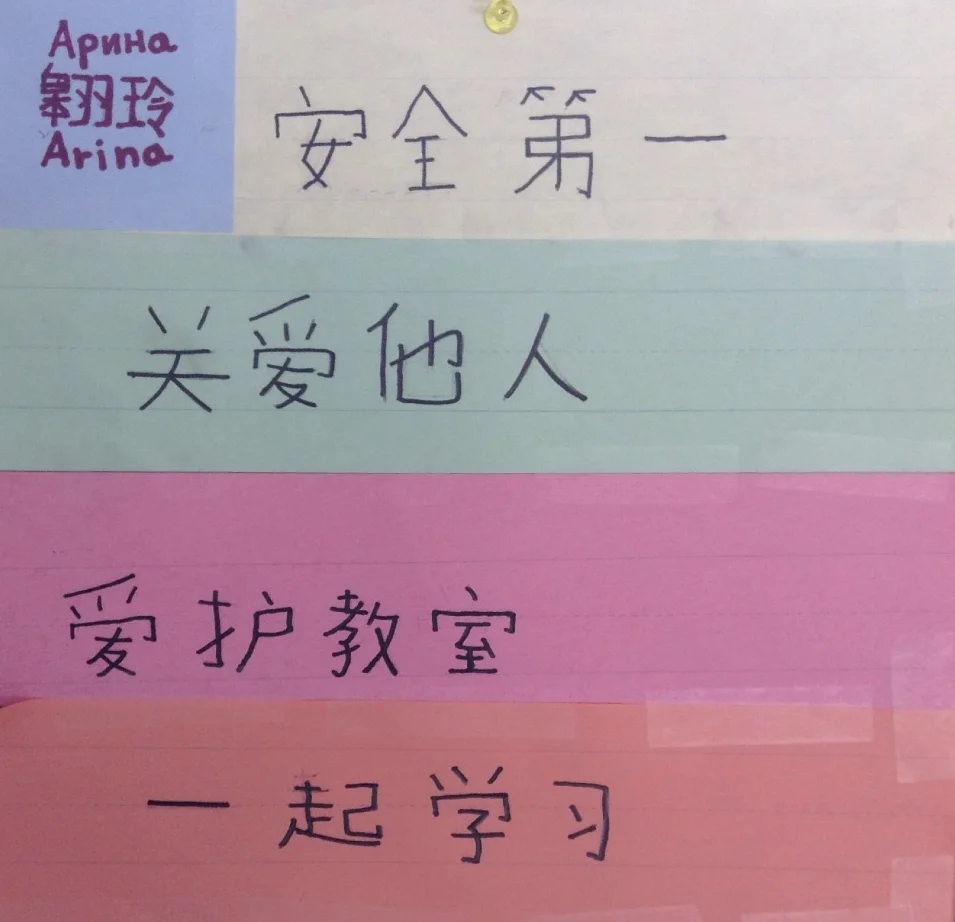 Арина
翱玲
Arina
安全第一
关爱他人
爱护教室
一起学习